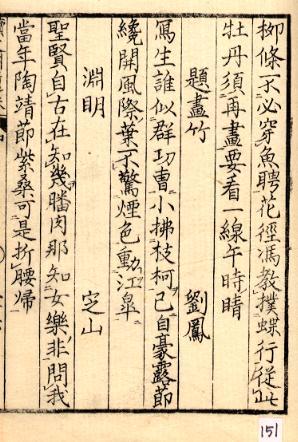 柳條不必穿魚聘花徑馮教撲蝶行從此
牡丹須再畫要看一線午時晴
題畫竹 劉鳳
寫生誰似群功曹小拂枝柯已自豪露節
纔開風際葉不驚煙色動江皋
淵明 定山
聖賢自古在知幾膰肉那知女樂非問我
當年陶靖節紫桑可是折腰歸
151